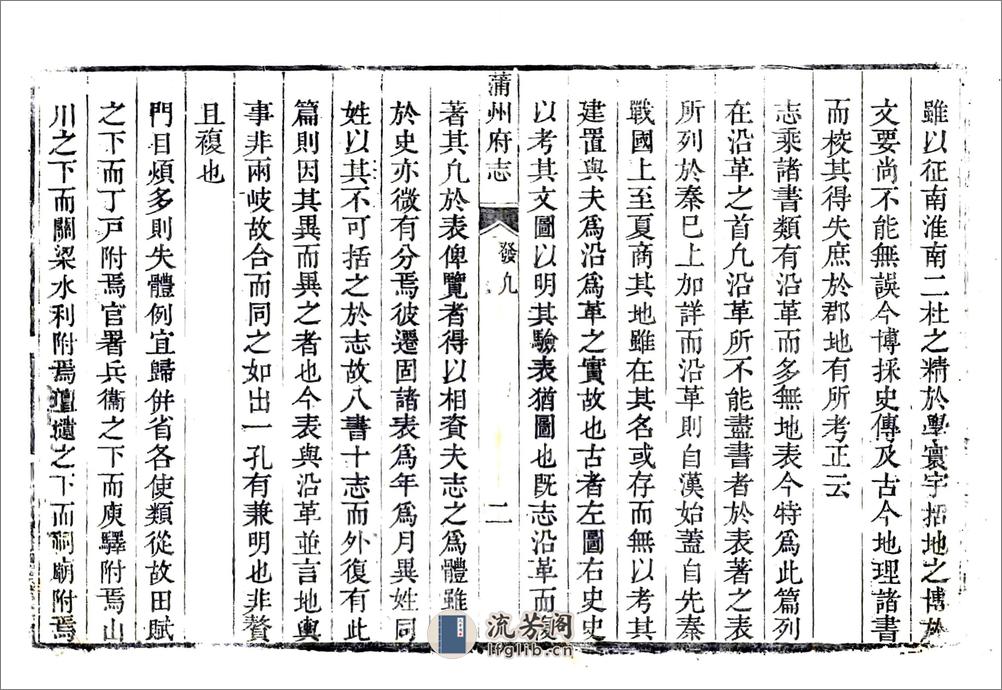 雖以征南淮南二杜之精於學寰宇括地之博於
文要尚不能無誤今博採史傳及古今地理諸書
而校其得失庶於郡地有所考正云
志乘諸書類有沿革而多無地表今特為此篇列
在沿革之首凢沿革所不能盡書者於表著之表
所列於秦已上加詳而沿革則自漢始蓋自先秦
戰國上至夏商其地雖在其名或存而無以考其
建置與夫爲沿爲革之實故也古者左圖右史史
以考其文圖以明其驗表猶圖也既志沿革而
蒲州府志
發凢
二
著其凢於表俾覽者得以相資夫志之爲體雖
於史亦微有分焉彼遷固諸表爲年爲月異姓同
姓以其不可括之於志故八書十志而外復有此
篇則因其異而異之者也今表與沿革並言地輿
事非兩岐故合而同之如出一孔有兼明也非贅
且複也
門目煩多則失體例宜歸併省各使類從故田賦
之下而丁戸附焉官署兵衞之下而庾驛附焉山
川之下而關梁水利附焉壇壝之下而祠廟附焉
流芳阁
lfglib.cn